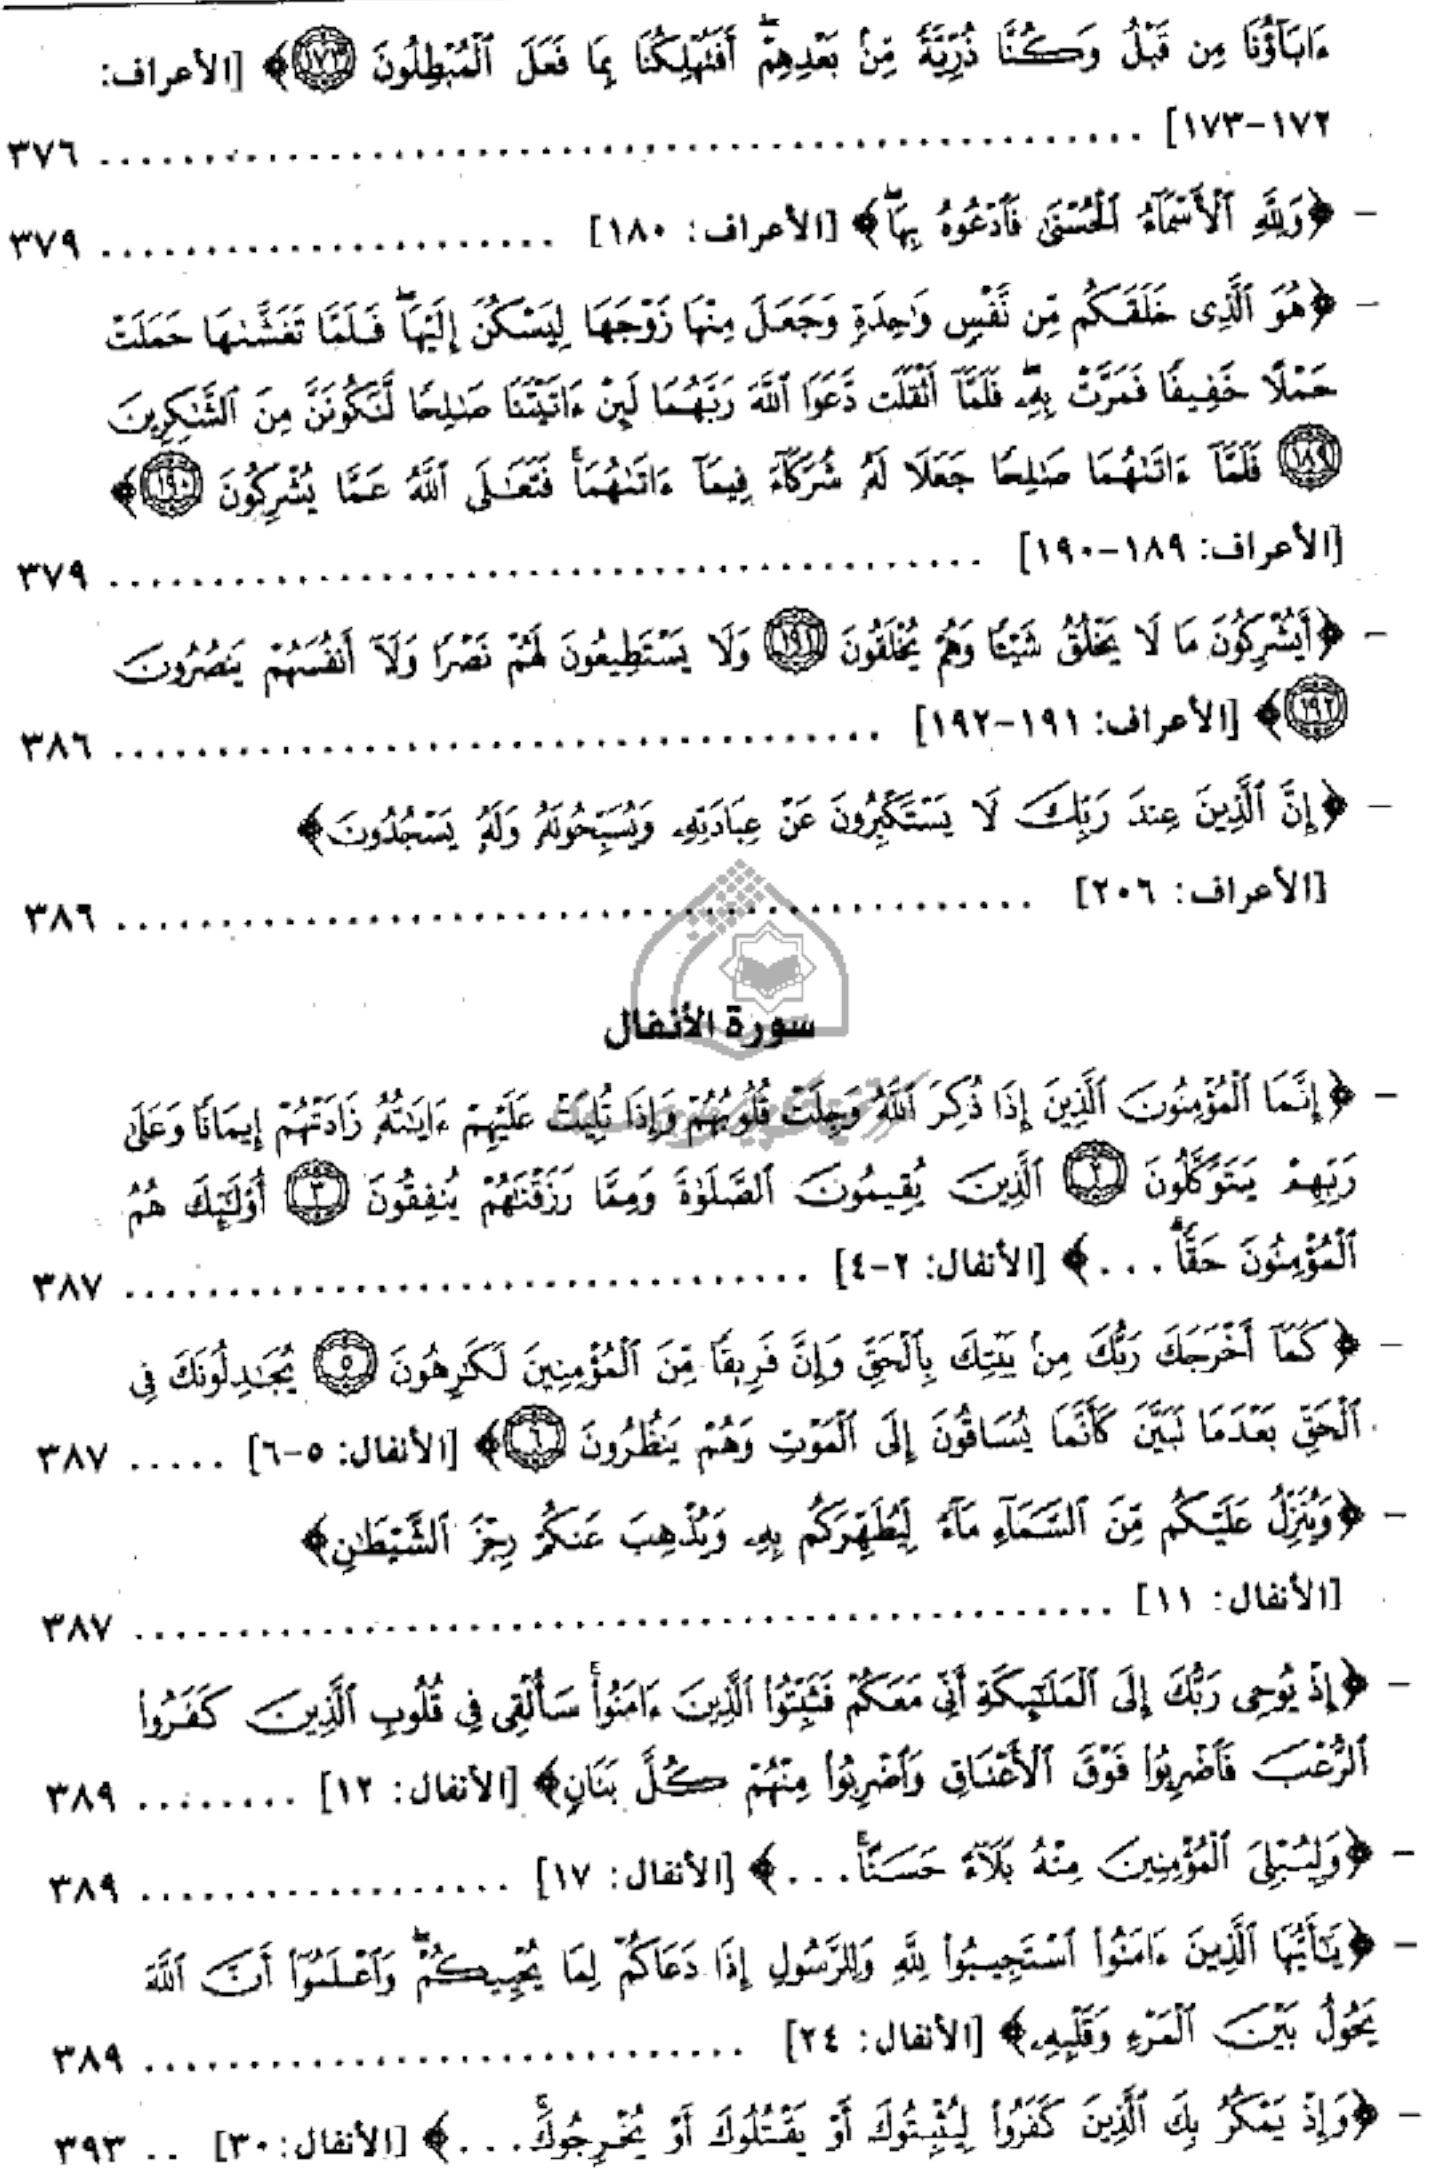 ءَابَآؤُنَا مِن قَبْلُ وَكُنَّا ذُرِّيَّةً مِّنۢ بَعْدِهِمْ ۖ أَفَتُهْلِكُنَا بِمَا فَعَلَ ٱلْمُبْطِلُونَ ﴿١٧٣﴾﴾ [الأعراف:
١٧٢-١٧٣] .................................................. ٣٧٦
- ﴿وَلِلَّهِ ٱلْأَسْمَآءُ ٱلْحُسْنَىٰ فَٱدْعُوهُ بِهَا ۖ﴾ [الأعراف: ١٨٠] ...................... ٣٧٩
- ﴿هُوَ ٱلَّذِى خَلَقَكُم مِّن نَّفْسٍ وَٰحِدَةٍ وَجَعَلَ مِنْهَا زَوْجَهَا لِيَسْكُنَ إِلَيْهَا ۖ فَلَمَّا تَغَشَّىٰهَا حَمَلَتْ
حَمْلًا خَفِيفًا فَمَرَّتْ بِهِۦ ۖ فَلَمَّآ أَثْقَلَت دَّعَوَا ٱللَّهَ رَبَّهُمَا لَئِنْ ءَاتَيْتَنَا صَٰلِحًا لَّنَكُونَنَّ مِنَ ٱلشَّٰكِرِينَ
﴿١٨٩﴾ فَلَمَّآ ءَاتَىٰهُمَا صَٰلِحًا جَعَلَا لَهُۥ شُرَكَآءَ فِيمَآ ءَاتَىٰهُمَا ۚ فَتَعَٰلَى ٱللَّهُ عَمَّا يُشْرِكُونَ ﴿١٩٠﴾﴾
[الأعراف: ١٨٩-١٩٠] .......................................... ٣٧٩
- ﴿أَيُشْرِكُونَ مَا لَا يَخْلُقُ شَيْـًٔا وَهُمْ يُخْلَقُونَ ﴿١٩١﴾ وَلَا يَسْتَطِيعُونَ لَهُمْ نَصْرًا وَلَآ أَنفُسَهُمْ يَنصُرُونَ
﴿١٩٢﴾﴾ [الأعراف: ١٩١-١٩٢] ..................................... ٣٨٦
- ﴿إِنَّ ٱلَّذِينَ عِندَ رَبِّكَ لَا يَسْتَكْبِرُونَ عَنْ عِبَادَتِهِۦ وَيُسَبِّحُونَهُۥ وَلَهُۥ يَسْجُدُونَ﴾
[الأعراف: ٢٠٦] ............................................ ٣٨٦
سورة الأنفال
- ﴿إِنَّمَا ٱلْمُؤْمِنُونَ ٱلَّذِينَ إِذَا ذُكِرَ ٱللَّهُ وَجِلَتْ قُلُوبُهُمْ وَإِذَا تُلِيَتْ عَلَيْهِمْ ءَايَٰتُهُۥ زَادَتْهُمْ إِيمَانًا وَعَلَىٰ
رَبِّهِمْ يَتَوَكَّلُونَ ﴿٢﴾ ٱلَّذِينَ يُقِيمُونَ ٱلصَّلَوٰةَ وَمِمَّا رَزَقْنَٰهُمْ يُنفِقُونَ ﴿٣﴾ أُو۟لَٰٓئِكَ هُمُ
ٱلْمُؤْمِنُونَ حَقًّا ۚ ...﴾ [الأنفال: ٢-٤] ................................. ٣٨٧
- ﴿كَمَآ أَخْرَجَكَ رَبُّكَ مِنۢ بَيْتِكَ بِٱلْحَقِّ وَإِنَّ فَرِيقًا مِّنَ ٱلْمُؤْمِنِينَ لَكَٰرِهُونَ ﴿٥﴾ يُجَٰدِلُونَكَ فِى
ٱلْحَقِّ بَعْدَمَا تَبَيَّنَ كَأَنَّمَا يُسَاقُونَ إِلَى ٱلْمَوْتِ وَهُمْ يَنظُرُونَ ﴿٦﴾﴾ [الأنفال: ٥-٦] ..... ٣٨٧
- ﴿وَيُنَزِّلُ عَلَيْكُم مِّنَ ٱلسَّمَآءِ مَآءً لِّيُطَهِّرَكُم بِهِۦ وَيُذْهِبَ عَنكُمْ رِجْزَ ٱلشَّيْطَٰنِ﴾
[الأنفال: ١١] ............................................... ٣٨٧
- ﴿إِذْ يُوحِى رَبُّكَ إِلَى ٱلْمَلَٰٓئِكَةِ أَنِّى مَعَكُمْ فَثَبِّتُوا۟ ٱلَّذِينَ ءَامَنُوا۟ ۚ سَأُلْقِى فِى قُلُوبِ ٱلَّذِينَ كَفَرُوا۟
ٱلرُّعْبَ فَٱضْرِبُوا۟ فَوْقَ ٱلْأَعْنَاقِ وَٱضْرِبُوا۟ مِنْهُمْ كُلَّ بَنَانٍ﴾ [الأنفال: ١٢] ........ ٣٨٩
- ﴿وَلِيُبْلِىَ ٱلْمُؤْمِنِينَ مِنْهُ بَلَآءً حَسَنًا ۚ ...﴾ [الأنفال: ١٧] .................. ٣٨٩
- ﴿يَٰٓأَيُّهَا ٱلَّذِينَ ءَامَنُوا۟ ٱسْتَجِيبُوا۟ لِلَّهِ وَلِلرَّسُولِ إِذَا دَعَاكُمْ لِمَا يُحْيِيكُمْ ۖ وَٱعْلَمُوٓا۟ أَنَّ ٱللَّهَ
يَحُولُ بَيْنَ ٱلْمَرْءِ وَقَلْبِهِۦ﴾ [الأنفال: ٢٤] ............................. ٣٨٩
- ﴿وَإِذْ يَمْكُرُ بِكَ ٱلَّذِينَ كَفَرُوا۟ لِيُثْبِتُوكَ أَوْ يَقْتُلُوكَ أَوْ يُخْرِجُوكَ ۚ ...﴾ [الأنفال: ٣٠] .. ٣٩٣